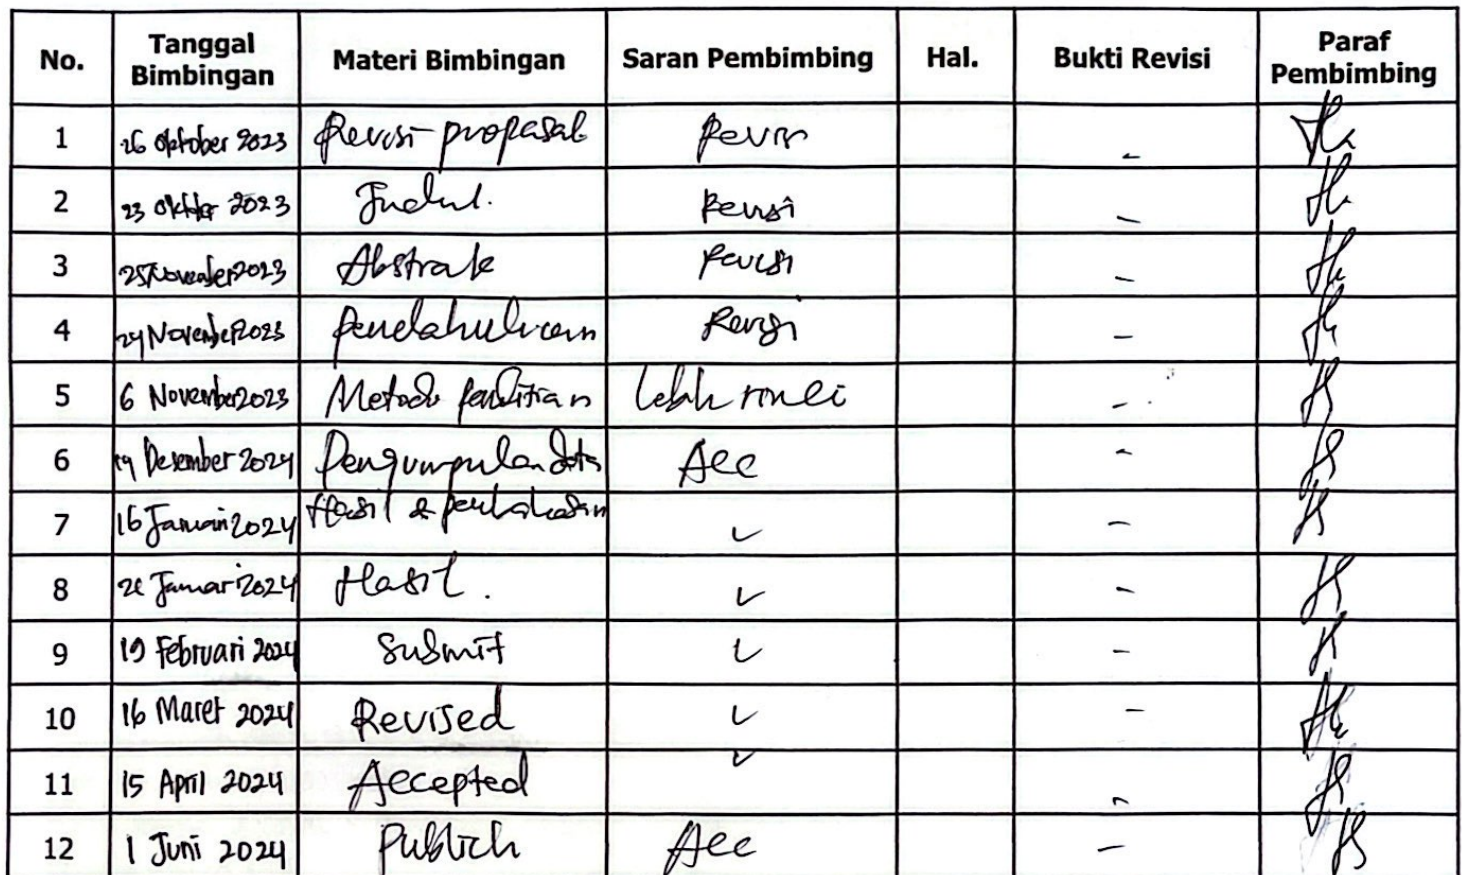 No. Tanggal Bimbingan Materi Bimbingan Saran Pembimbing Hal. Bukti Revisi Paraf Pembimbing
1 26 Oktober 2023 Revisi proposal Revisi -
2 23 2023 Judul. Revisi -
3 25 November 2023 Abstrak Revisi -
4 24 November 2023 pendahuluan Revisi -
5 6 November 2023 Metode penelitian lebih rinci -
6 Desember 2024 Pengumpulan data Acc -
7 16 Januari 2024 Hasil & pembahasan ✓ -
8 Januari 2024 Hasil. ✓ -
9 19 Februari 2024 Submit ✓ -
10 16 Maret 2024 Revised ✓ -
11 15 April 2024 Accepted ✓ -
12 1 Juni 2024 Publich Acc -